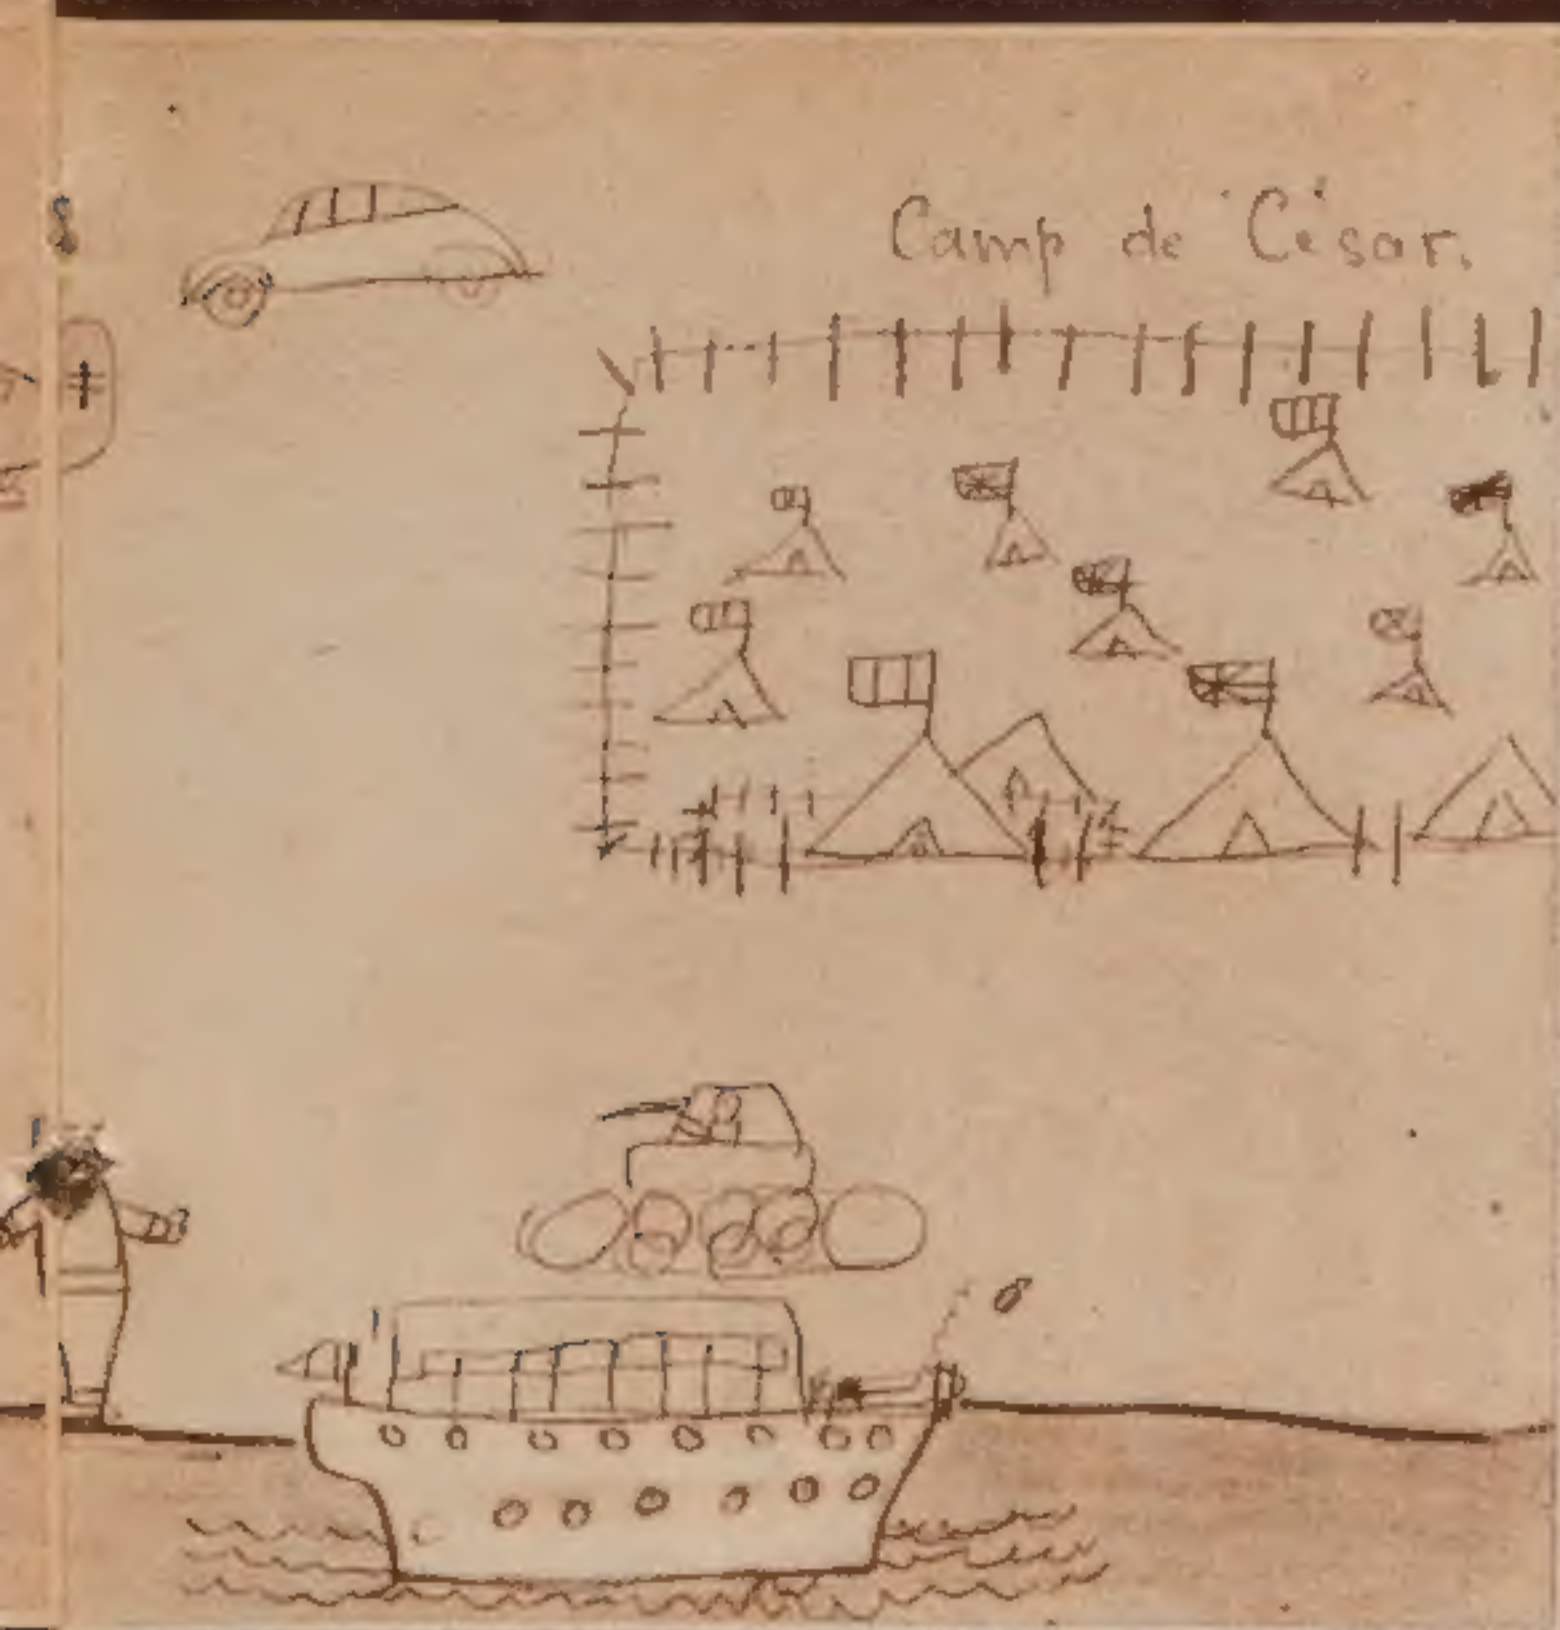 Camp de César.